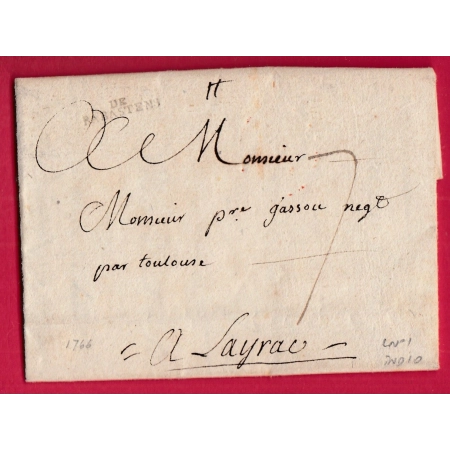 DE
RABASTENS
A Monsieur 7
Monsieur pre gassou negt
par toulouse
a Layrac
1766